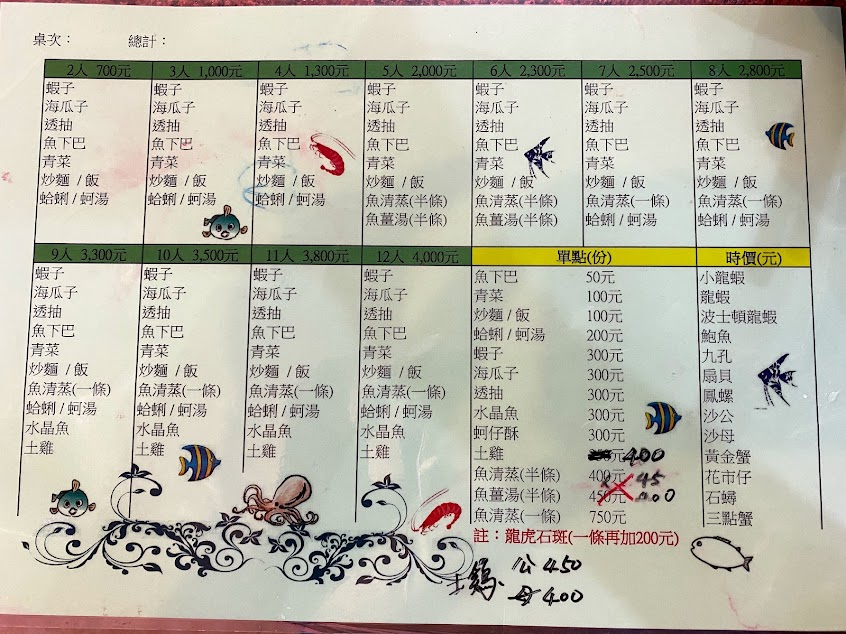 桌次： 總計：
2人 700元 3人 1,000元 4人 1,300元 5人 2,000元 6人 2,300元 7人 2,500元 8人 2,800元
蝦子 蝦子 蝦子 蝦子 蝦子 蝦子 蝦子
海瓜子 海瓜子 海瓜子 海瓜子 海瓜子 海瓜子 海瓜子
透抽 透抽 透抽 透抽 透抽 透抽 透抽
魚下巴 魚下巴 魚下巴 魚下巴 魚下巴 魚下巴 魚下巴
青菜 青菜 青菜 青菜 青菜 青菜 青菜
炒麵 / 飯 炒麵 / 飯 炒麵 / 飯 炒麵 / 飯 炒麵 / 飯 炒麵 / 飯 炒麵 / 飯
蛤蜊 / 蚵湯 蛤蜊 / 蚵湯 蛤蜊 / 蚵湯 魚清蒸(半條) 魚清蒸(半條) 魚清蒸(一條) 魚清蒸(一條)
魚薑湯(半條) 魚薑湯(半條) 蛤蜊 / 蚵湯 蛤蜊 / 蚵湯
9人 3,300元 10人 3,500元 11人 3,800元 12人 4,000元 單點(份) 時價(元)
蝦子 蝦子 蝦子 蝦子 魚下巴 50元 小龍蝦
海瓜子 海瓜子 海瓜子 海瓜子 青菜 100元 龍蝦
透抽 透抽 透抽 透抽 炒麵 / 飯 100元 波士頓龍蝦
魚下巴 魚下巴 魚下巴 魚下巴 蛤蜊 / 蚵湯 200元 鮑魚
青菜 青菜 青菜 青菜 蝦子 300元 九孔
炒麵 / 飯 炒麵 / 飯 炒麵 / 飯 炒麵 / 飯 海瓜子 300元 扇貝
魚清蒸(一條) 魚清蒸(一條) 魚清蒸(一條) 魚清蒸(一條) 透抽 300元 鳳螺
蛤蜊 / 蚵湯 蛤蜊 / 蚵湯 蛤蜊 / 蚵湯 蛤蜊 / 蚵湯 水晶魚 300元 沙公
水晶魚 水晶魚 水晶魚 水晶魚 蚵仔酥 300元 沙母
土雞 土雞 土雞 土雞 土雞 元 400 黃金蟹
魚清蒸(半條) 400元 45 花市仔
魚薑湯(半條) 450元 石蟳
魚清蒸(一條) 750元 三點蟹
註：龍虎石斑(一條再加200元)
土鷄 公 450
母 400